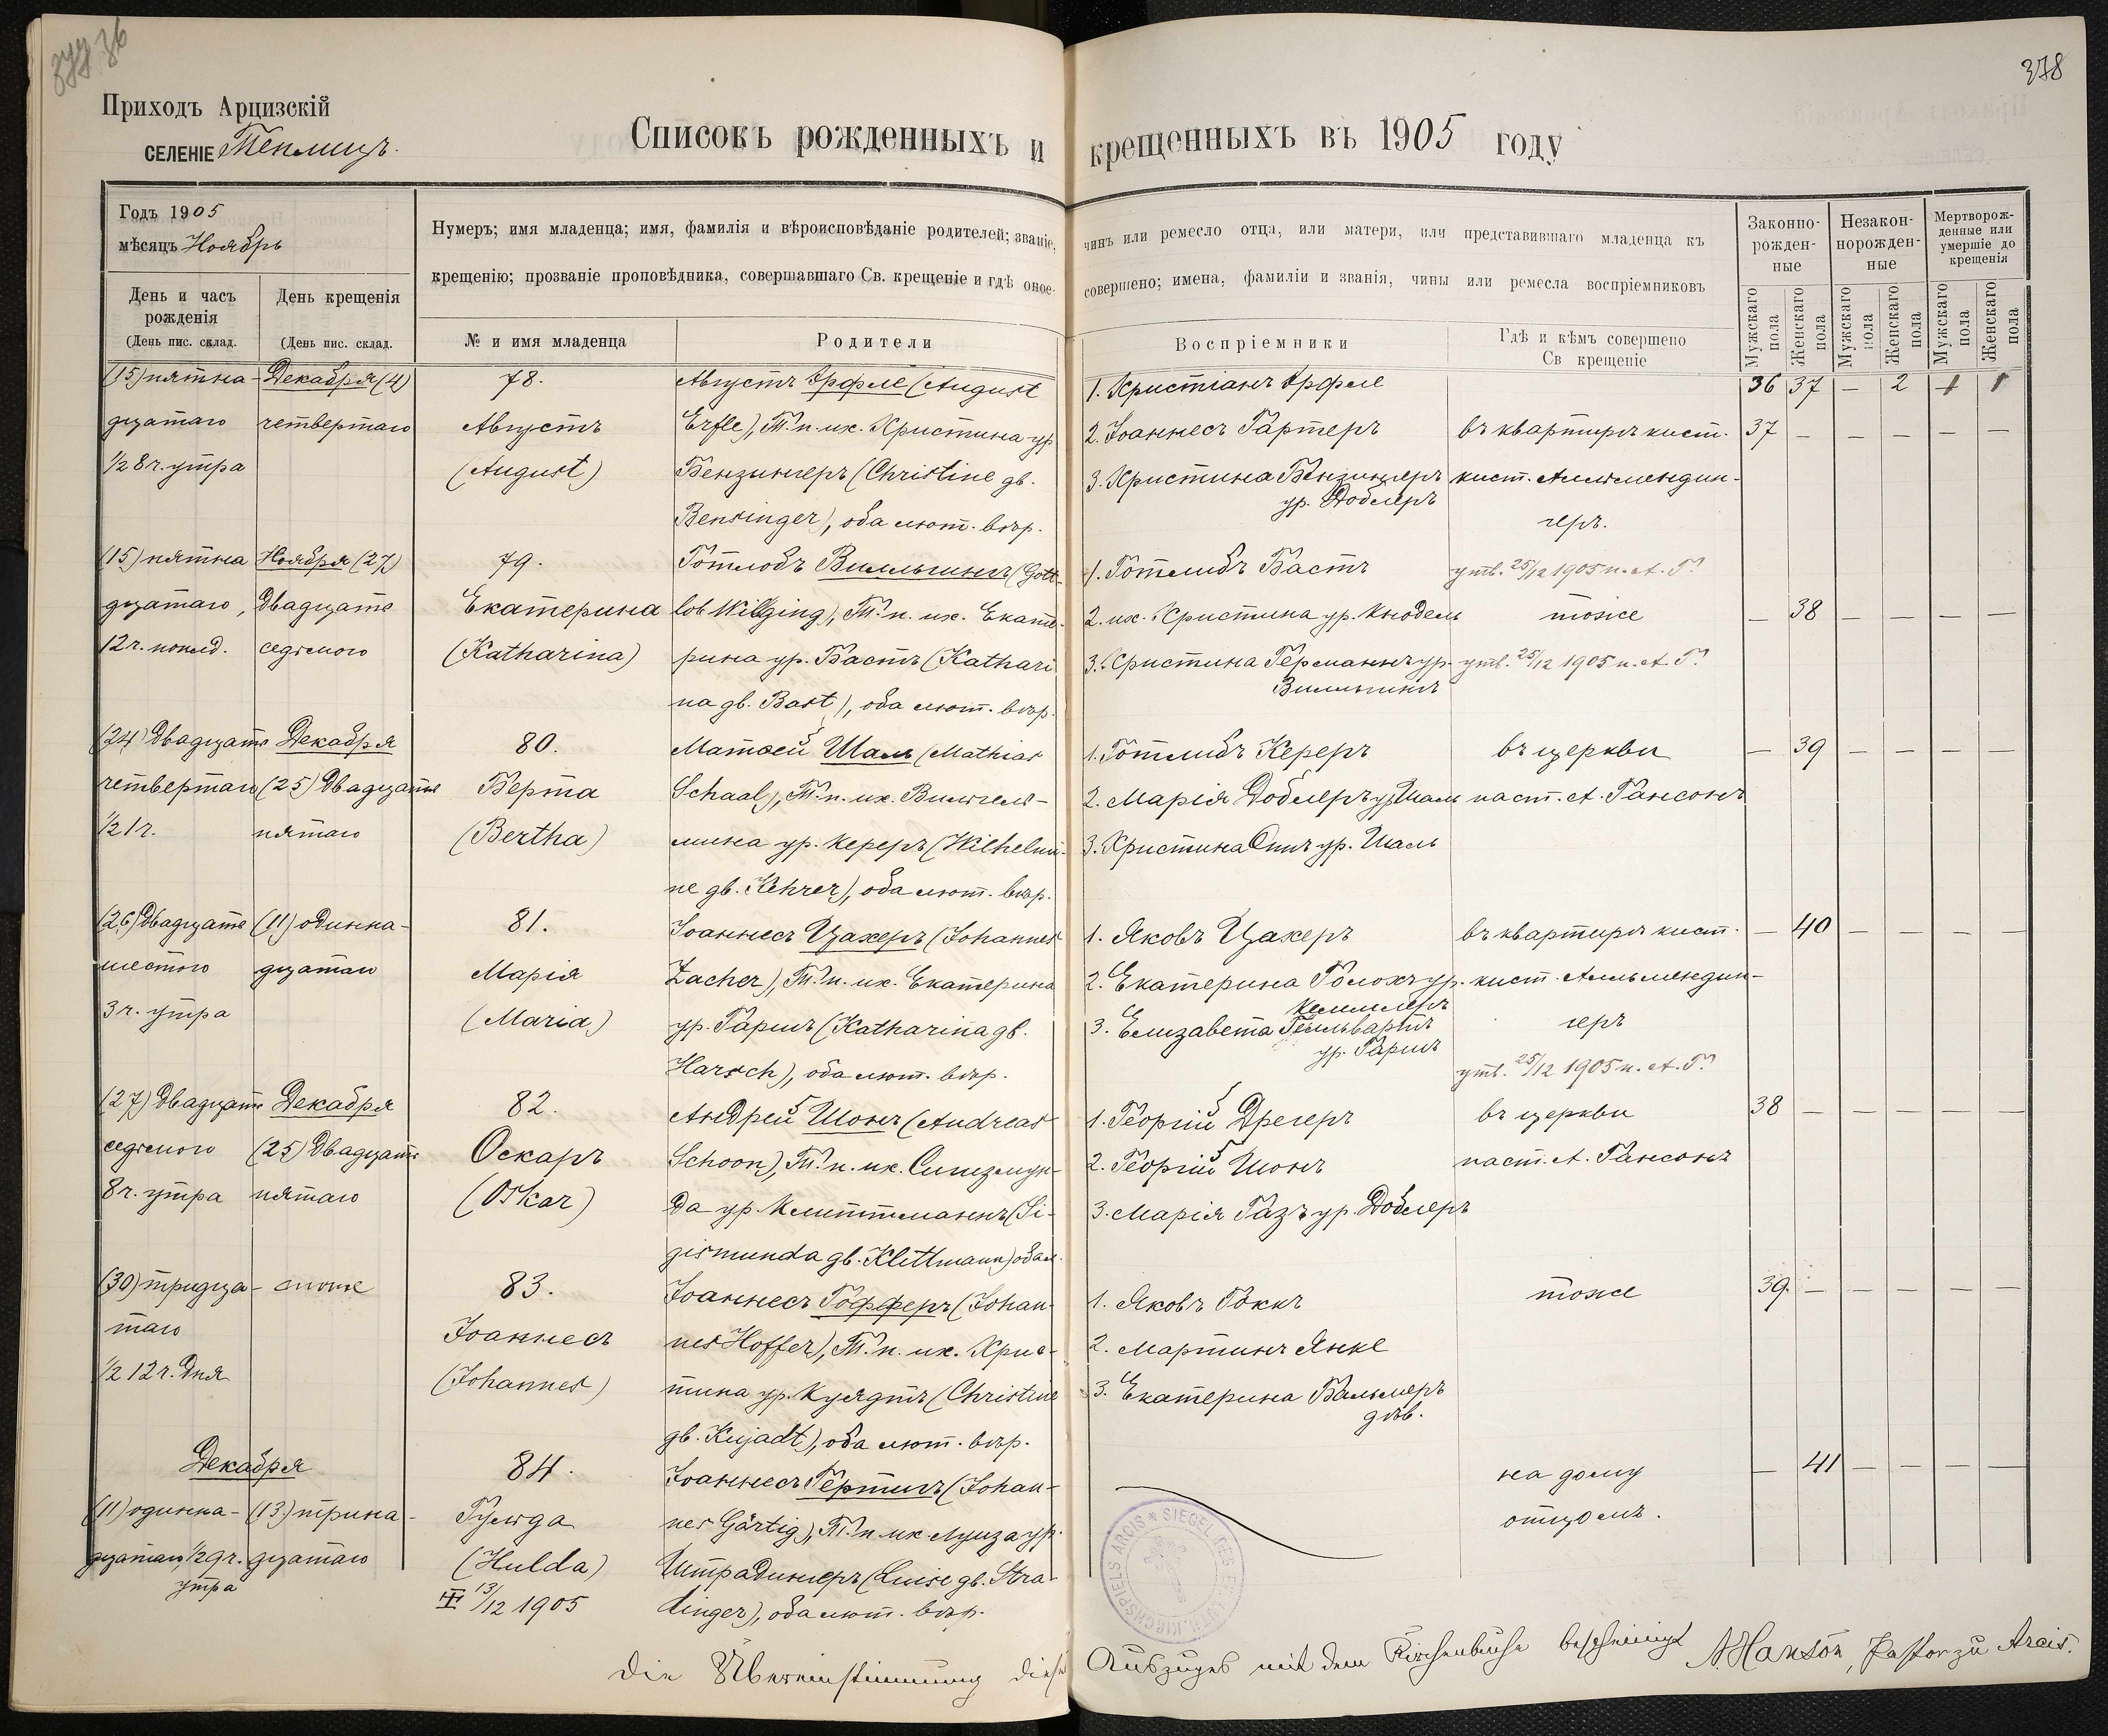 377 36
378
Приходъ Арцизскій
СЕЛЕНІЕ Теплицъ.
Списокъ рожденныхъ и крещенныхъ въ 1905 году
Годъ 1905
мѣсяцъ Ноябрь
День и часъ
рожденія
(День пис. склад.
День крещенія
(День пис. склад.
Нумеръ; имя младенца; имя, фамилія и вѣроисповѣданіе родителей; званіе, чинъ или ремесло отца, или матери, или представившаго младенца къ
крещенію; прозваніе проповѣдника, совершавшаго Св. крещеніе и гдѣ оное совершено; имена, фамиліи и званія, чины или ремесла воспріемниковъ
№ и имя младенца
Родители
Воспріемники
Гдѣ и кѣмъ совершено
Св крещеніе
Законно-
рожден-
ные
Незакон-
норожден-
ные
Мертворож-
денные или
умершіе до
крещенія
Мужскаго пола
Женскаго пола
Мужскаго пола
Женскаго пола
Мужскаго пола
Женскаго пола
36 37 — 2 1 1
(15) пятна-
дцатаго
1/2 8 ч. утра
Декабря (4)
четвертаго
78.
Августъ
(August)
Августъ Эрфле (August
Erfle), Т. п. их. Кристина ур.
Бензингеръ (Christine gb.
Bensinger), оба лют. вѣр.
1. Кристіанъ Эрфле
2. Іоаннесъ Гертеръ
3. Кристина Бензингеръ
ур. Доблеръ
въ квартирѣ кист.
кист. Алльмендин-
геръ.
утв. 25/12 1905 п. А. Г.
37 — — — — —
(15) пятна
дцатаго,
12 ч. полд.
Ноября (27)
двадцать
седьмого
79.
Екатерина
(Katharina)
Готлобъ Вилльгингъ (Gott-
lob Willging), Т. п. их. Екате-
рина ур. Бастъ (Kathari
na gb. Bast), оба лют. вѣр.
1. Готлибъ Бастъ
2. их. Кристина ур. Кнодель
3. Кристина Германнъ ур.
Вилльгингъ
тоже
утв. 25/12 1905 п. А. Г.
— 38 — — — —
(24) двадцать
четвертаго
1/2 1 ч.
Декабря
(25) двадцать
пятаго
80.
Берта
(Bertha)
Матѳей Шаль (Mathias
Schaal), Т. п. их. Вильгель-
мина ур. Кереръ (Wilhelmi-
ne gb. Kehrer), оба лют. вѣр.
1. Готлибъ Кереръ
2. Марія Доблеръ ур. Шаль
3. Кристина Опп ур. Шаль
въ церкви
паст. А. Гансонъ
— 39 — — — —
(26) двадцать
шестого
3 ч. утра
(11) одинна-
дцатаго
81.
Марія
(Maria)
Іоаннесъ Цахеръ (Johannes
Zacher), Т. п. их. Екатерина
ур. Гаршъ (Katharina gb.
Harsch), оба лют. вѣр.
1. Яковъ Цахеръ
2. Екатерина Голохъ ур.
Кельмлеръ
3. Елизавета Гелльвартъ
ур. Гаршъ
въ квартирѣ кист.
кист. Алльмендин-
геръ
утв. 25/12 1905 п. А. Г.
— 40 — — — —
(27) двадцать
седьмого
8 ч. утра
Декабря
(25) двадцать
пятаго
82.
Оскаръ
(Oskar)
Андрей Шонъ (Andreas
Schoon), Т. п. их. Сигизмун-
да ур. Клеттманнъ (Si-
gismunda gb. Klettmann) оба л.
1. Георгій Дрегеръ
2. Георгій Шонъ
3. Марія Газъ ур. Доблеръ
въ церкви
паст. А. Гансонъ
38 — — — — —
(30) тридца-
таго
1/2 12 ч. дня
тоже
83.
Іоаннесъ
(Johannes)
Іоаннесъ Гофферъ (Johan-
nes Hoffer), Т. п. их. Крис-
тина ур. Куядтъ (Christine
gb. Kujadt), оба лют. вѣр.
1. Яковъ Гоккъ
2. Мартинъ Янке
3. Екатерина Бальмеръ
дѣв.
тоже
39. — — — — —
Декабря
(11) одинна-
дцатаго, 1/2 9 ч.
утра
(13) трина-
дцатаго
84.
Гульда
(Hulda)
13/12 1905
Іоаннесъ Гертигъ (Johan-
nes Gärtig), Т. п. их. Луиза ур.
Штрадингеръ (Luise gb. Stra-
dinger), оба лют. вѣр.
на дому
отцомъ.
— 41 — — — —
SIEGEL DES EV. LUTH. KIRCHSPIELS ARCIS
Die Übereinstimmung dieses Auszuges mit dem Kirchenbuche bescheinigt A. Hanson, Pastor zu Arcis.